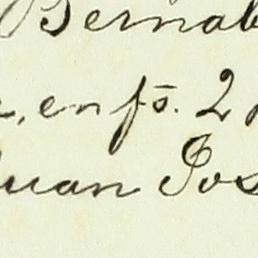 Bernab
, en fs. 2
uan Jos